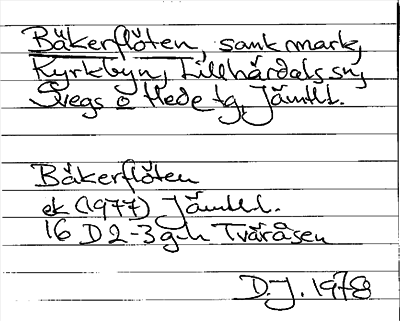 Bäkerflöten, sank mark,
Kyrkbyn, Lillhärdals sn,
Svegs o Hede tg, Jämtl l.
Bäkerflöten
ek (1977) Jämtl l.
16 D 2-3 g-h Tväråsen
D.J. 1978